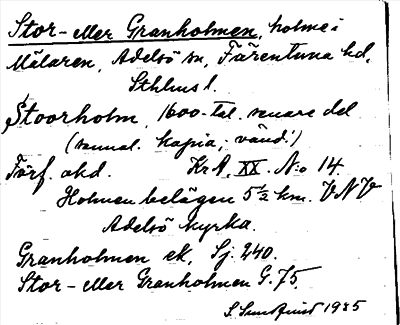 Stor- eller Granholmen, holme i
Mälaren, Adelsö sn, Färentuna hd,
Sthlms l.
Stoorholm, 1600-tal. senare del
(samml. kopia; vänd!)
Förf. okd. KrA. XX. N:o 14.
Holmen belägen 5 1/2 km. VNV
Adelsö kyrka.
Granholmen ek, Sj. 240.
Stor- eller Granholmen G. 75.
S. Sundquist 1935